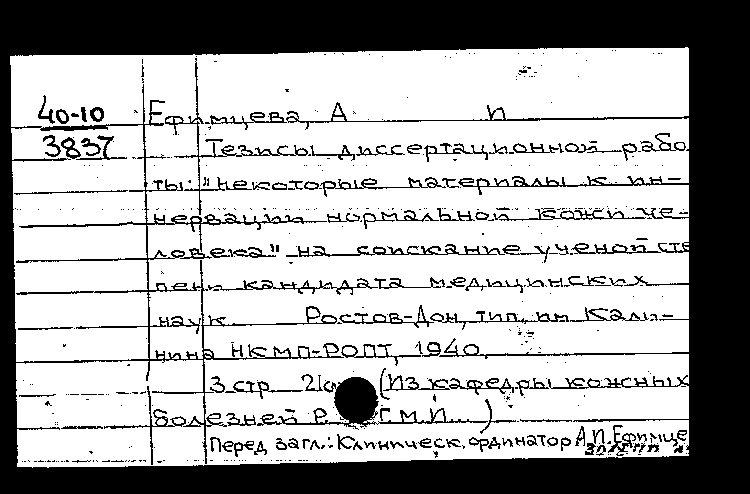 40-10
3837
Ефимцева, А П
Тезисы диссертационной рабо
ты: "Некоторые материалы к ин-
нервации нормальной кожи че-
ловека" на соискание ученой сте
пени кандидата медицинских
наук. Ростов-Дон, тип. им Кали-
нина НКМП-РОПТ, 1940.
3 стр. (Из кафедры кожных
болезней Г.М.И.)
Перед загл.: Клиническ. ординатор А.П. Ефимце